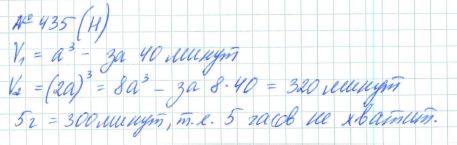 № 435 (н)
V₁ = a³ - за 40 минут
V₂ = (2a)³ = 8a³ - за 8·40 = 320 минут
5г = 300 минут, т.е. 5 часов не хватит.